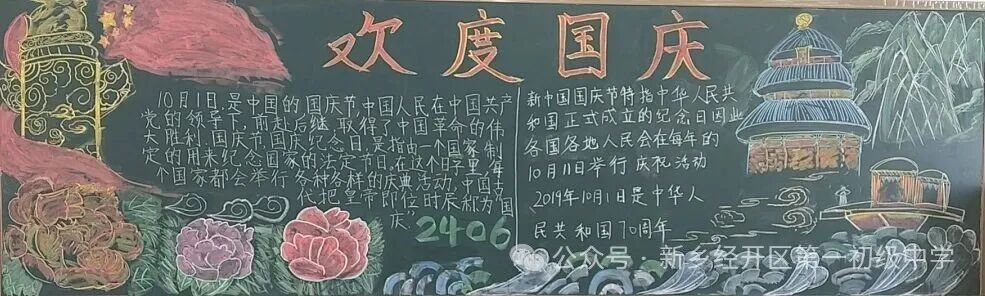 欢度国庆
10月1日是中国的国庆节中国人民在中国共产
党的领导下,前赴后继,取得了中国革命的伟
大胜利,国庆节国庆纪念日,是指由一个国家制
定的用来纪念国家的法定节日,在这个日子里,每
个国家都会举行各种各样的庆典活动,中国古
代把皇帝即位时辰都为"国
庆"
2406
新中国国庆节特指中华人民共
和国正式成立的纪念日因此
各国各地人民会在每年的
10月1日举行庆祝活动
2019年10月1日是中华人
民共和国70周年
公众号:新乡经开区第一初级中学